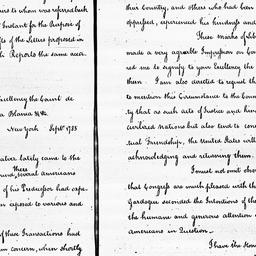 irs to whom was referred back
Instant for the Purpose of
ts of the Letters proposed in
h Reports the same acco
Excellency the Count de
a Blanca &c.
New York Sept. 1785
alier lately came to the
there
found several americans
of his Predecessor had expe
en exposed to various and
of these Transactions had
im concern, when shortly
their Country, and others who had been
oppressed, experienced his kindness and
These Marks of lib
made a very agreable Impression on Cong
ed me to signify to your Excellency the
them. I am also directed to request th
to mention this Circumstance to the Coun
ty that as such acts of Justice and hu
civilized Nations but also tend to cons
tual Friendship, the United States will
acknowledging and returning them.
I must not omit
that Congress are much pleased with th
Gardoqui seconded the Intentions of th
the humane and generous attention
americans in Question
I have the Hono